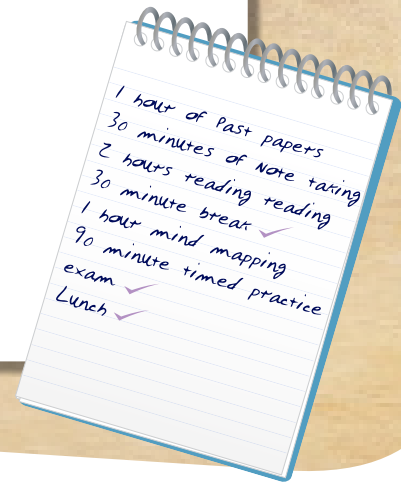 1 hour of Past papers
30 minutes of Note taking
2 hours reading reading
30 minute break ✓
1 hour mind mapping
90 minute timed practice
exam ✓
Lunch ✓